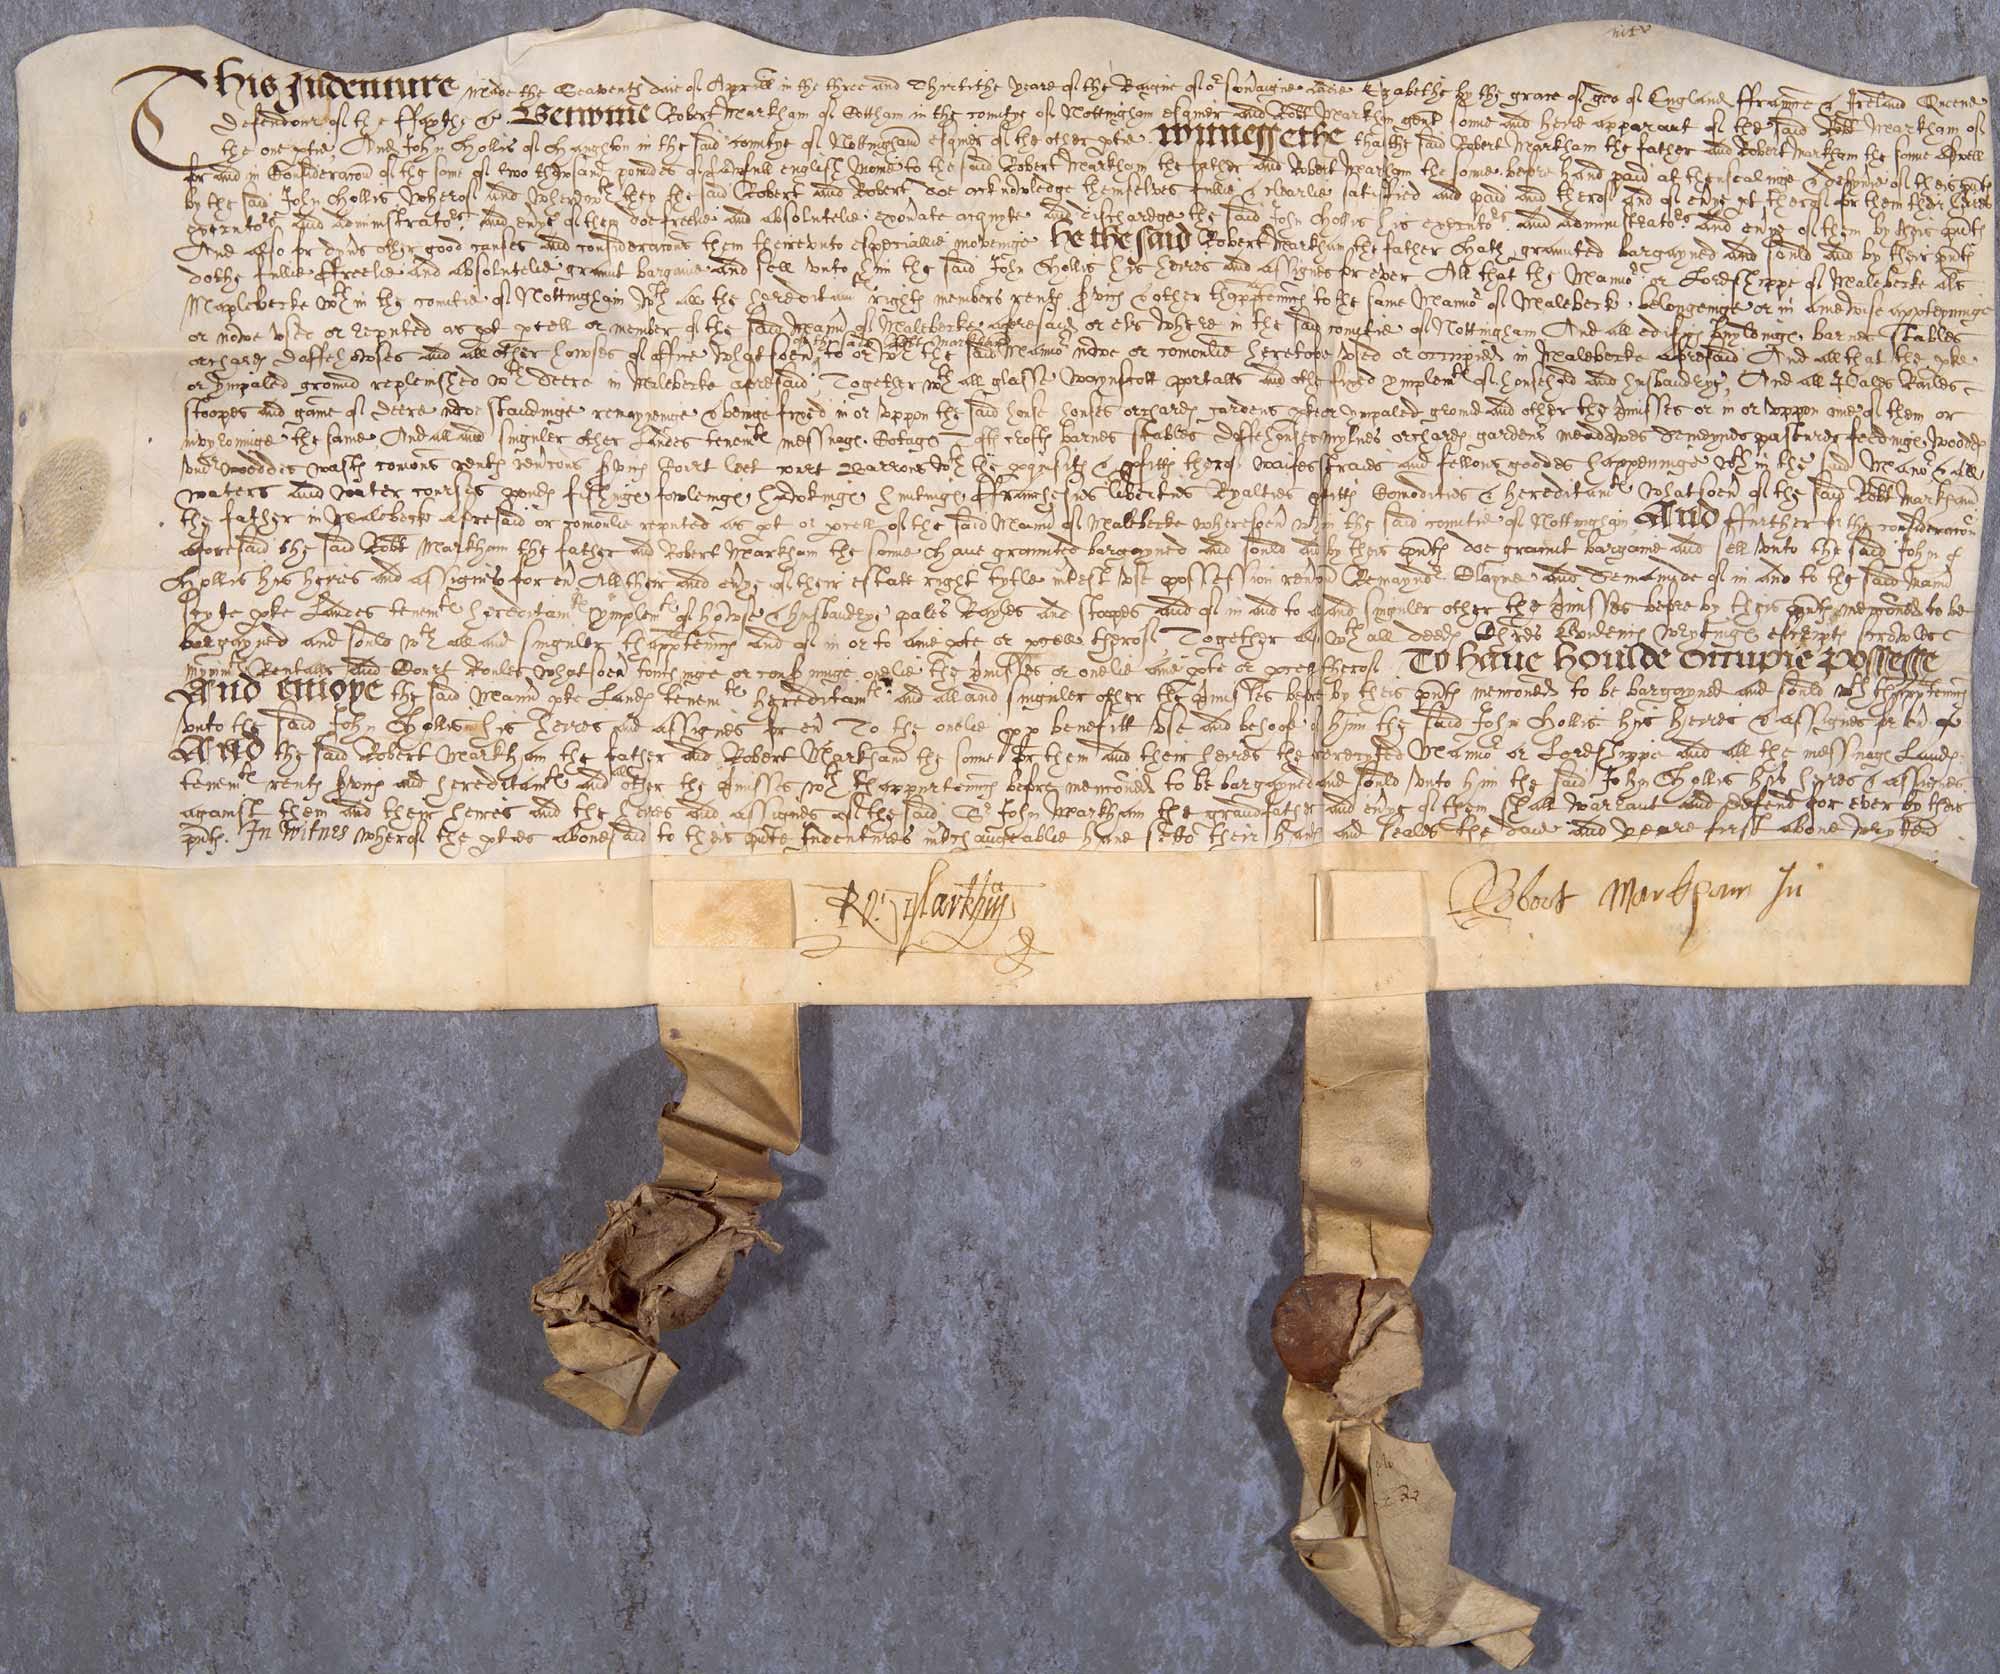 This Indenture made the Seaventh daie of Aprill in the three and Thirtithe yeare of the Raigne of or sovraigne Ladie Elizabethe by the grace of god of England ffraunce & Ireland Queene
defendour of the ffaythe &c Betwene Robert Markham of Cottham in the countye of Nottingham esquier and Robt Markham gent sonne and heire apparant of the said Robt Markham of
the one ptie, And John Hollis of Haughton in the said countye of Nottingham esquier of the other ptie Wittnessethe that the said Robert Markham the father and Robert Markham the sonne aswell
for and in Consideracon of the some of two thowsand poundes of lawfull english money to the said Robert Markham the father and Robert Markham the sonne before hand paid at thensealinge & delyvrie of theis pnts
by the said John Hollis Wherof and Wherewth they the said Robert and Robert doe acknowledge themselves fullie & clearlie satisfied and paid and therof and of evrye pt therof for them their heires
executors and administrators and evrye of them doe freelie and absolutelie exonrate acquyte and discharge the said John Hollis his executors and administrators and evrye of them by theis pnts
And also for dyvrs other good causes and consideracons them thereunto especiallie movinge He the said Robert Markham the father Hath graunted bargayned and sould and by theis pnts
dothe fullie ffreelie and absolutelie graunt bargaine and sell unto him the said John Hollis his heires and assignes for ever All that the Mannor or Lordshippe of Malebecke als
Maplebecke wth in the countie of Nottingham wth all the hereditamts rights members rents svics & other thapptenncs to the same Mannor of Malebeck belonginge or in aniewise apperteyninge
or nowe used or reputed as pt pcell or member of the said Mannor of Malebecke aforesaid or els where in the said countie of Nottingham And all edifics buyldings barnes stables
orchards dovehowses and all other howses of office whatsoevr to or wth the said Mannor nowe or comonlie heretofore used or occupied in Malebecke aforesaid And all that the pke
of the said Robt Markham
or Impaled ground replenished wth deere in Malebecke aforesaid, Together wth all glasse waynscott portalls and othe fixed ymplemts of household and husbandrye, And all Pales Railes
stoopes and game of deere nowe standinge remayninge & beinge fixed in or uppon the said house houses orchards gardens pke or Impaled ground and other the pmisses or in or uppon anie of them or
the same, And all and singuler other Landes tenemts messuags Cotags Tofts crofts barnes stables dovehouses mylnes orchards gardens meadowes demeynes pastures feedings woodes
undrwoodes wasts comons rents revrcons svics Court leet wth the pquisits & pfitts therof waifes straies and fellons goodes happeninge wth in the said Mannor & all
waters and water courses ponds fishings fowlings hawkings huntings ffranchesies liberties Ryalties pfitts Comodities & hereditamts whatsoevr of the said Robt Markham
the father in Malebeck aforesaid or comonlie reputed as pt or pcell of the said Mannor of Malebecke wheresoevr wthin the said countie of Nottingham And ffurther for the consideracon
aforesaid the said Robt Markham the father and Robert Markham the sonne Have graunted bargayned and sould and by theis pnts doe graunt bargaine and sell unto the said John
Hollis his heires and assignes for evr All their and evrye of their estate right tytle intrest use possession revrcon Remayndr Clayme and demaunde of in and to the said Mannor
scyte pke Landes tenemts hereditamts ymplemts of howse & husbandrye pales Rayles and stoopes and of in and to all and singuler other the pmisses before by theis pnts mencioned to be
bargayned and sould wth all and singuler thapptenncs and of in or to anie pte or pcell therof, Together also wth all deeds Chres Evidencs wrytings escripts scrowles
mynimts Rentalls and Court Roules whatsoevr touchinge or concrninge onelie the pmisses or onelie anie pte or pcell therof To have houlde occupie possesse
And enioye the said Mannor pke Lands tenemts hereditamts and all and singuler other the pmisses before by theis pnts mencioned to be bargayned and sould wth thapptenncs
unto the said John Hollis his heires and assignes for evr To the onelie pp benefitt use and behoofe of him the said John Hollis his heires & assignes for evr
And the said Robert Markham the father and Robert Markham the sonne for them and their heires the Mannor or Lordshippe and all the messuags Lands
tenemts rents svics and hereditamts and all other the pmisses wth thappurtenncs before mencioned to be bargayned and sould unto him the said John Hollis his heires & assignes
against them and their heires and the heires and assignes of the said Sr John Markham the grandfather and evrye of them shall warrant and defend for ever by theis
pnts. In witnes wherof the pties abovesaid to theis pnte Indentures intrchaungeablie have sette their hands and seales the daie and yeare first above wrytten
Ro: Markhm
Robert Markham Ju